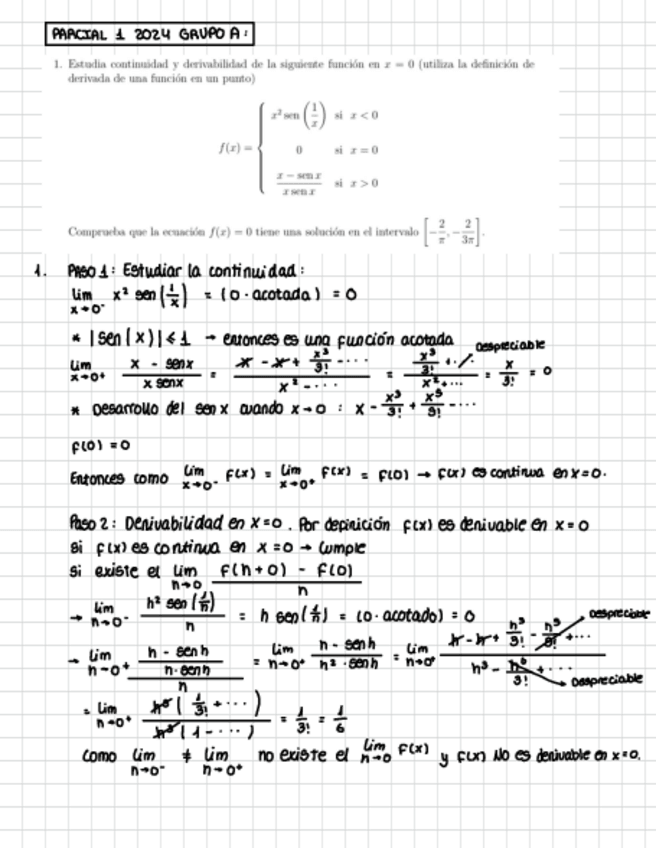 PARCIAL 1 2024 GRUPO A:
1. Estudia continuidad y derivabilidad de la siguiente función en x = 0 (utiliza la definición de
derivada de una función en un punto)
f(x) = { x² sen (1/x) si x < 0
0 si x = 0
(x − sen x)/(x sen x) si x > 0
Comprueba que la ecuación f(x) = 0 tiene una solución en el intervalo [−2/π, −2/3π].
1. PASO 1: Estudiar la continuidad:
lim x→0⁻ x² sen(1/x) = (0 · acotada) = 0
* |sen(x)| ≤ 1 → entonces es una función acotada
Despreciable
lim x→0⁺ (x - senx)/(x senx) = (x - x + x³/3! - ...)/(x² - ...) = (x³/3! + ...)/(x² + ...) = x/3! = 0
* Desarrollo del senx cuando x→0 : x - x³/3! + x⁵/5! - ...
f(0) = 0
Entonces como lim x→0⁻ f(x) = lim x→0⁺ f(x) = f(0) → f(x) es continua en x=0.
Paso 2: Derivabilidad en x=0. Por definición f(x) es derivable en x=0
si f(x) es continua en x=0 → Cumple
si existe el lim h→0 (f(h+0) - f(0))/h
→ lim h→0⁻ (h² sen(1/h))/h = h sen(1/h) = (0 · acotado) = 0
Despreciable
→ lim h→0⁺ ((h - senh)/(h·senh))/h = lim h→0⁺ (h - senh)/(h² · senh) = lim h→0⁺ (h - h + h³/3! - h⁵/5! + ...)/(h³ - h⁵/3! + ...)
Despreciable
= lim h→0⁺ (h³(1/3! + ...))/(h³(1 - ...)) = 1/3! = 1/6
Como lim h→0⁻ ≠ lim h→0⁺ no existe el lim h→0 f(x) y f(x) NO es derivable en x=0.